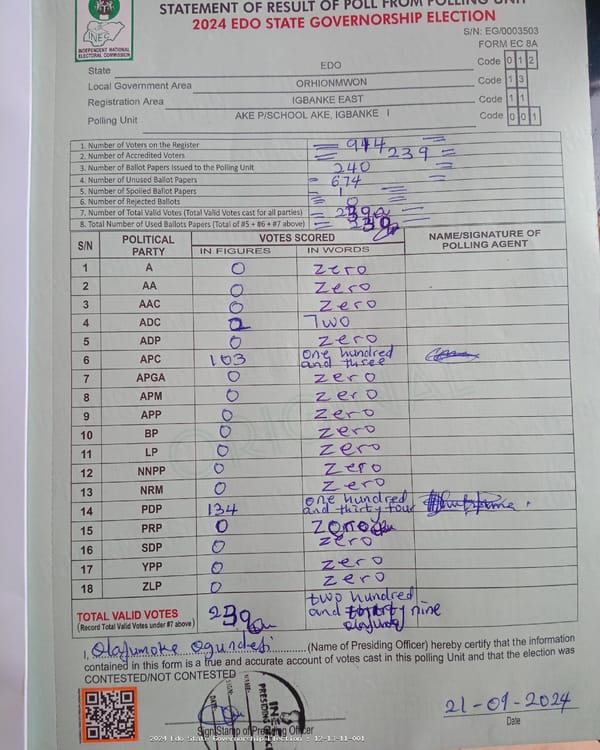 STATEMENT OF RESULT OF POLL FROM POLLING UNIT
2024 EDO STATE GOVERNORSHIP ELECTION
INEC
INDEPENDENT NATIONAL ELECTORAL COMMISSION
S/N: EG/0003503
FORM EC 8A
State EDO Code 0 1 2
Local Government Area ORHIONMWON Code 1 3
Registration Area IGBANKE EAST Code 1 1
Polling Unit AKE P/SCHOOL AKE, IGBANKE I Code 0 0 1
1. Number of Voters on the Register = 914 =
2. Number of Accredited Voters = 239 =
3. Number of Ballot Papers Issued to the Polling Unit 240
4. Number of Unused Ballot Papers = 674 =
5. Number of Spoiled Ballot Papers = 1 =
6. Number of Rejected Ballots = 0 =
7. Number of Total Valid Votes (Total Valid Votes cast for all parties) = 239
8. Total Number of Used Ballots Papers (Total of #5 + #6 + #7 above) = 239
S/N POLITICAL PARTY VOTES SCORED NAME/SIGNATURE OF POLLING AGENT
IN FIGURES IN WORDS
1 A 0 Zero
2 AA 0 Zero
3 AAC 0 Zero
4 ADC 2 Two
5 ADP 0 Zero
6 APC 103 one hundred and three
7 APGA 0 Zero
8 APM 0 Zero
9 APP 0 Zero
10 BP 0 Zero
11 LP 0 Zero
12 NNPP 0 Zero
13 NRM 0 Zero
14 PDP 134 one hundred and thirty four
15 PRP 0
16 SDP 0 zero
17 YPP 0 zero
18 ZLP 0 zero
TOTAL VALID VOTES 239 two hundred and nine
(Record Total Valid Votes under #7 above)
ORIGINAL
I, Olafunoke Ogundesi (Name of Presiding Officer) hereby certify that the information
contained in this form is a true and accurate account of votes cast in this polling Unit and that the election was
CONTESTED/NOT CONTESTED
Sign/Stamp of Presiding Officer
INEC
21-09-2024
Date
2024 Edo State Governorship Election : 12-13-11_001